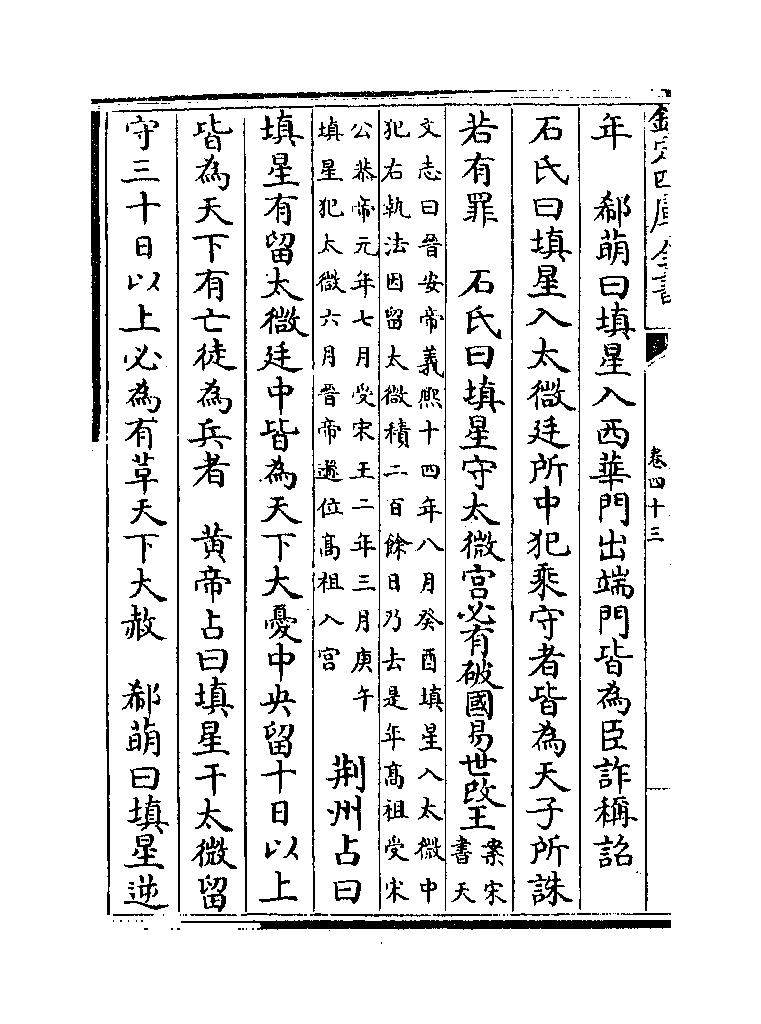 欽定四庫全書
卷四十三
年　郗萌曰填星入西華門出端門皆為臣詐稱詔
石氏曰填星入太微廷所中犯乘守者皆為天子所誅
若有罪　石氏曰填星守太微宮必有破國易世改王
案宋
書天
文志曰晉安帝義熙十四年八月癸酉填星入太微中
犯右執法因留太微積二百餘日乃去是年高祖受宋
公恭帝元年七月受宋王二年三月庚午
填星犯太微六月晉帝遜位高祖入宮
荆州占曰
填星有留太微廷中皆為天下大憂中央留十日以上
皆為天下有亡徒為兵者　黄帝占曰填星干太微留
守三十日以上必為有草天下大赦　郗萌曰填星逆